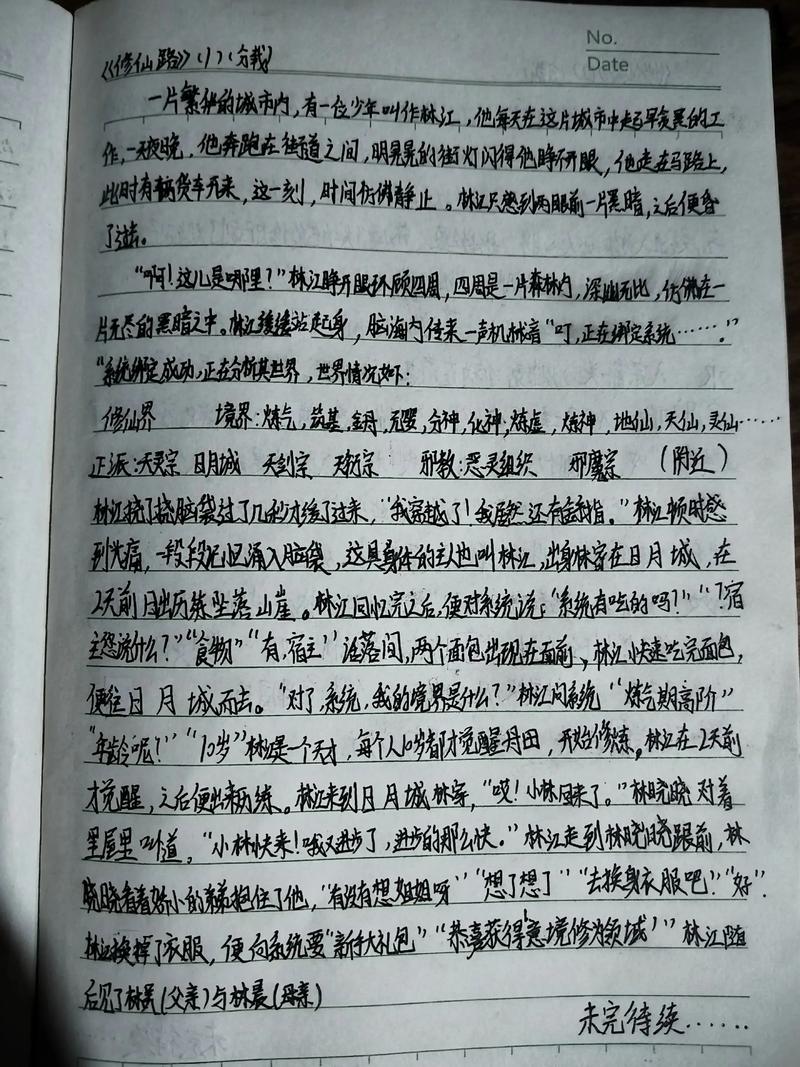 No.
Date
《修仙路》(1)(分载)
一片繁华的城市内，有一位少年叫作林江，他每天在这片城市中起早贪黑的工
作，一天夜晚，他奔跑在街道之间，明晃晃的街灯闪得他睁不开眼，他走在马路上，
此时有辆货车开来，这一刻，时间仿佛静止。林江只感到两眼前一片黑暗，之后便昏
了过去。
“啊！这儿是哪里？”林江睁开眼环顾四周，四周是一片森林内，深幽无比，仿佛在一
片无尽的黑暗之中。林江缓缓站起身，脑海内传来一声机械音“叮，正在绑定系统……。”
“系统绑定成功，正在分析其世界，世界情况如下：
修仙界 境界：炼气，筑基，金丹，元婴，分神，化神，炼虚，炼神，地仙，天仙，灵仙……
正派：天灵宗 日月城 天剑宗 天衍宗 邪教：恶灵组织 邪魔宗 （附近）
林江挠了挠脑袋过了几秒才缓了过来，“我穿越了！我居然还有金手指。”林江顿时感
到头痛，一段段记忆涌入脑袋，这具身体的主人也叫林江，出身林家在日月城，在
2天前日出历练坠落山崖。林江回忆完之后，便对系统说：“系统有吃的吗？”“？宿
主您说什么？”“食物”“有，宿主”话落间，两个面包出现在面前，林江快速吃完面包，
便往日月城而去。“对了，系统，我的境界是什么？”林江问系统“炼气期高阶”
“年龄呢？”“10岁”林江是一个天才，每个人10岁都才觉醒丹田，开始修炼。林江在2天前
才觉醒，之后便出来历练。林江来到日月城林家，“哎！小林回来了。”林晓晓对着
里屋里叫道，“小林快来！哦又进步了，进步的那么快。”林江走到林晓晓跟前，林
晓晓看着娇小的弟弟抱住了他，“有没有想姐姐呀”“想了想了”“去换身衣服吧”“好”.
林江换掉了衣服，便向系统要“新手大礼包”“恭喜获得‘意境修为领域’”林江随
后见了林(父亲)与林晨(母亲)
未完待续……